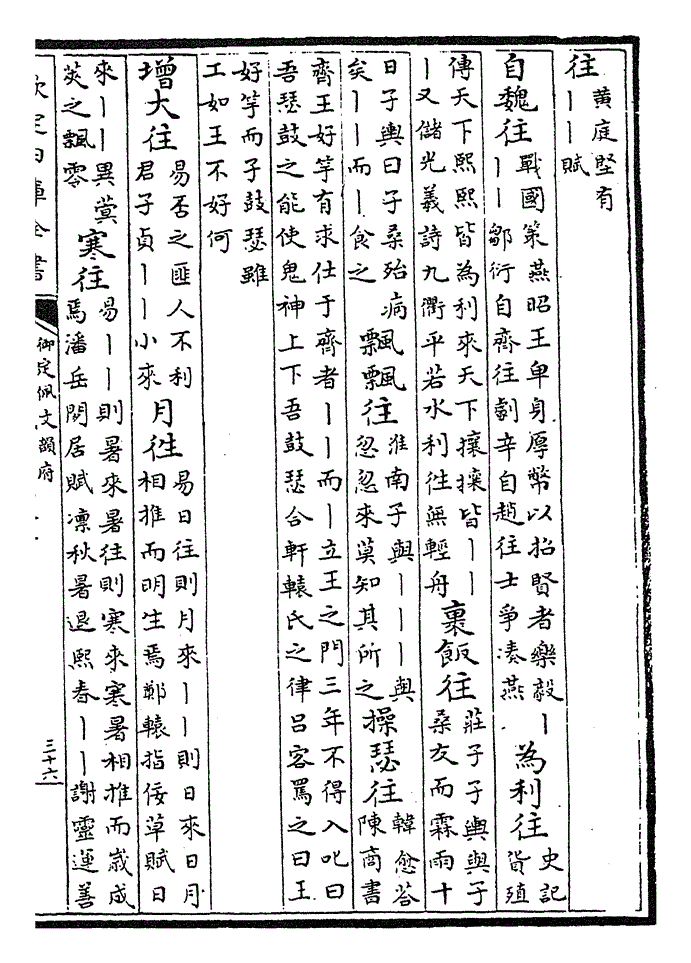 往
黃庭堅有
丨丨賦
自魏往
戰國策燕昭王卑身厚幣以招賢者樂毅丨
丨丨鄒衍自齊往劇辛自趙往士爭湊燕
為利往
史記
貨殖
傳天下熙熙皆為利來天下攘攘皆丨丨
丨又儲光羲詩九衢平若水利往無輕舟
裹飯往
莊子子輿與子
桑友而霖雨十
日子輿曰子桑殆病
矣丨丨而丨食之
飄飄往
淮南子與丨丨丨丨與
忽忽來莫知其所之
操瑟往
韓愈荅
陳商書
齊王好竽有求仕于齊者丨丨而丨立王之門三年不得入叱曰
吾瑟鼓之能使鬼神上下吾鼓瑟合軒轅氏之律呂客罵之曰王
好竽而子鼓瑟雖
工如王不好何
增大往
易否之匪人不利
君子貞丨丨小來
月往
易日往則月來丨丨則日來日月
相推而明生焉鄭轅指佞草賦日
來丨丨異蓂
莢之飄零
寒往
易丨丨則暑來暑往則寒來寒暑相推而嵗成
焉潘岳閒居賦凛秋暑退熙春丨丨謝靈運善
欽定四庫全書
御定佩文韻府
三十六